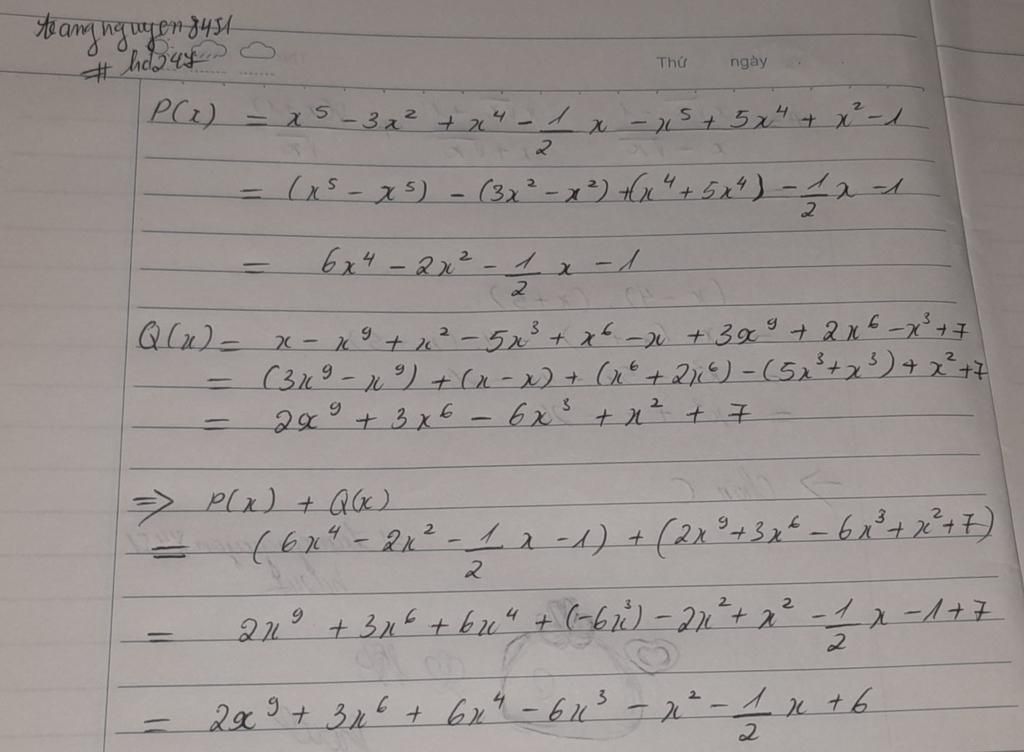 trangnguyen8451
# hd247
Thứ ngày
P(x) = x⁵ - 3x² + x⁴ - 1/2 x - x⁵ + 5x⁴ + x² - 1
= (x⁵ - x⁵) - (3x² - x²) + (x⁴ + 5x⁴) - 1/2 x - 1
= 6x⁴ - 2x² - 1/2 x - 1
Q(x) = x - x⁹ + x² - 5x³ + x⁶ - x + 3x⁹ + 2x⁶ - x³ + 7
= (3x⁹ - x⁹) + (x - x) + (x⁶ + 2x⁶) - (5x³ + x³) + x² + 7
= 2x⁹ + 3x⁶ - 6x³ + x² + 7
=> P(x) + Q(x)
= (6x⁴ - 2x² - 1/2 x - 1) + (2x⁹ + 3x⁶ - 6x³ + x² + 7)
= 2x⁹ + 3x⁶ + 6x⁴ + (-6x³) - 2x² + x² - 1/2 x - 1 + 7
= 2x⁹ + 3x⁶ + 6x⁴ - 6x³ - x² - 1/2 x + 6